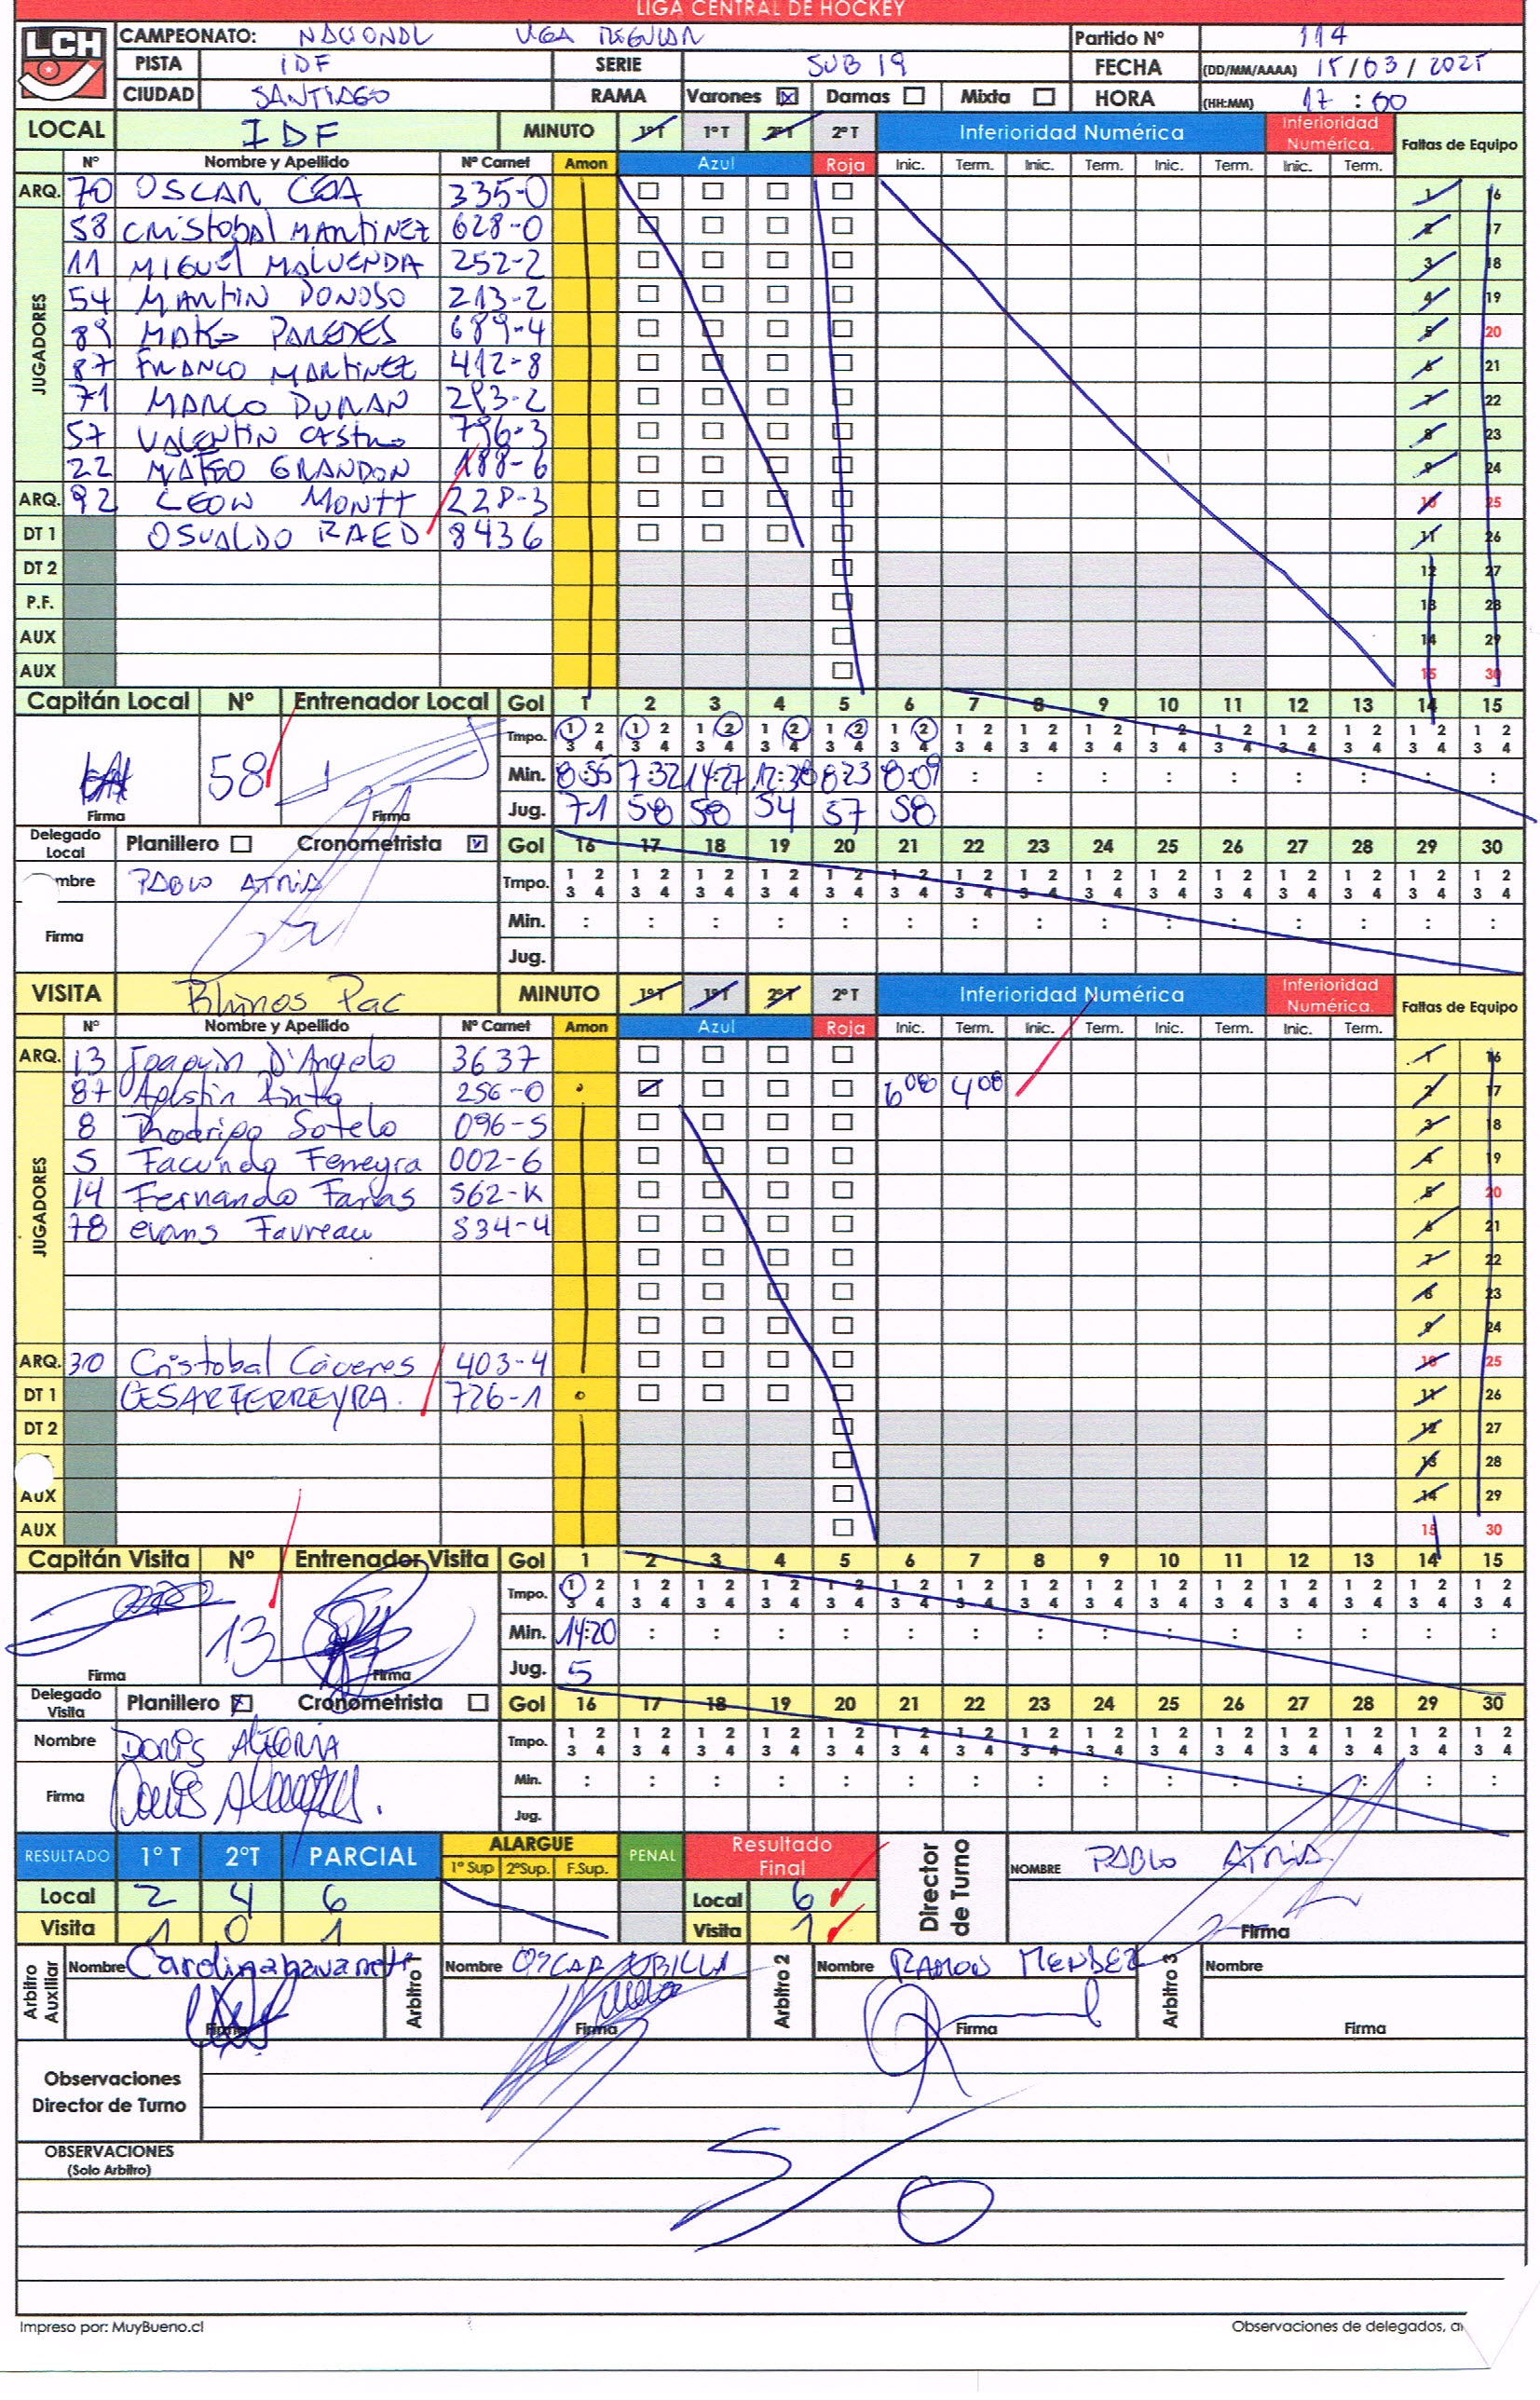 LIGA CENTRAL DE HOCKEY
LCH CAMPEONATO: NACIONAL LIGA REGULAR Partido Nº 114
PISTA IDF SERIE SUB 19 FECHA (DD/MM/AAAA) 15/03/2025
CIUDAD SANTIAGO RAMA Varones Damas Mixta HORA (HH:MM) 17:00
LOCAL IDF MINUTO 1ºT 1ºT 2ºT 2ºT Inferioridad Numérica Inferioridad Numérica. Faltas de Equipo
Nº Nombre y Apellido Nº Carnet Amon Azul Roja Inic. Term. Inic. Term. Inic. Term. Inic. Term.
ARQ. 70 OSCAR CEA 335-0 1 16
JUGADORES
58 CRISTOBAL MARTINEZ 628-0 2 17
11 MIGUEL MALUENDA 252-2 3 18
54 MARTIN DONOSO 213-2 4 19
89 MATEO PAREDES 689-4 5 20
87 FRANCO MARTINEZ 412-8 6 21
71 MARCO DURAN 293-2 7 22
57 VALENTIN CASTRO 796-3 8 23
22 MATEO GRANDON 188-6 9 24
ARQ. 92 LEON MONTT 228-3 10 25
DT 1 OSVALDO RAED 8436 11 26
DT 2 12 27
P.F. 13 28
AUX 14 29
AUX 15 30
Capitán Local Nº Entrenador Local Gol 1 2 3 4 5 6 7 8 9 10 11 12 13 14 15
Tmpo. 1 2 1 2 1 2 1 2 1 2 1 2 1 2 1 2 1 2 1 2 1 2 1 2 1 2 1 2 1 2
3 4 3 4 3 4 3 4 3 4 3 4 3 4 3 4 3 4 3 4 3 4 3 4 3 4 3 4 3 4
58 Min. 8:55 7:32 14:27 12:38 8:23 8:09 : : : : : : : : :
Firma Firma Jug. 71 58 58 54 57 58
Delegado Local Planillero Cronometrista Gol 16 17 18 19 20 21 22 23 24 25 26 27 28 29 30
mbre PABLO ATRIA Tmpo. 1 2 1 2 1 2 1 2 1 2 1 2 1 2 1 2 1 2 1 2 1 2 1 2 1 2 1 2 1 2
3 4 3 4 3 4 3 4 3 4 3 4 3 4 3 4 3 4 3 4 3 4 3 4 3 4 3 4 3 4
Firma Min. : : : : : : : : : : : : : : :
Jug.
VISITA Rhinos Pac MINUTO 1ºT 1ºT 2ºT 2ºT Inferioridad Numérica Inferioridad Numérica. Faltas de Equipo
Nº Nombre y Apellido Nº Carnet Amon Azul Roja Inic. Term. Inic. Term. Inic. Term. Inic. Term.
ARQ. 13 Joaquin D'Angelo 3637 1 16
JUGADORES
87 Agustin Pinto 256-0 6:08 4:08 2 17
8 Rodrigo Sotelo 096-5 3 18
5 Facundo Ferreyra 002-6 4 19
14 Fernando Farias 562-K 5 20
78 evans Favreau 534-4 6 21
7 22
8 23
9 24
ARQ. 30 Cristobal Cáceres 403-4 10 25
DT 1 CESAR FERREYRA. 726-1 11 26
DT 2 12 27
13 28
AUX 14 29
AUX 15 30
Capitán Visita Nº Entrenador Visita Gol 1 2 3 4 5 6 7 8 9 10 11 12 13 14 15
Tmpo. 1 2 1 2 1 2 1 2 1 2 1 2 1 2 1 2 1 2 1 2 1 2 1 2 1 2 1 2 1 2
3 4 3 4 3 4 3 4 3 4 3 4 3 4 3 4 3 4 3 4 3 4 3 4 3 4 3 4 3 4
13 Min. 14:20 : : : : : : : : : : : : : :
Firma Firma Jug. 5
Delegado Visita Planillero Cronometrista Gol 16 17 18 19 20 21 22 23 24 25 26 27 28 29 30
Nombre DORIS ALEGRIA Tmpo. 1 2 1 2 1 2 1 2 1 2 1 2 1 2 1 2 1 2 1 2 1 2 1 2 1 2 1 2 1 2
3 4 3 4 3 4 3 4 3 4 3 4 3 4 3 4 3 4 3 4 3 4 3 4 3 4 3 4 3 4
Firma Min. : : : : : : : : : : : : : : :
Jug.
RESULTADO 1º T 2ºT PARCIAL ALARGUE 1º Sup 2ºSup. F.Sup. PENAL Resultado Final Director de Turno NOMBRE PABLO ATRIA
Local 2 4 6 Local 6
Visita 1 0 1 Visita 1 Firma
Arbitro Auxiliar Nombre Carolina Navarrete Arbitro 1 Nombre OSCAR Arbitro 2 Nombre RAMON MENDEZ Arbitro 3 Nombre
Firma Firma Firma Firma
Observaciones
Director de Turno
OBSERVACIONES
(Solo Arbitro)
S/O
Impreso por: MuyBueno.cl Observaciones de delegados, a